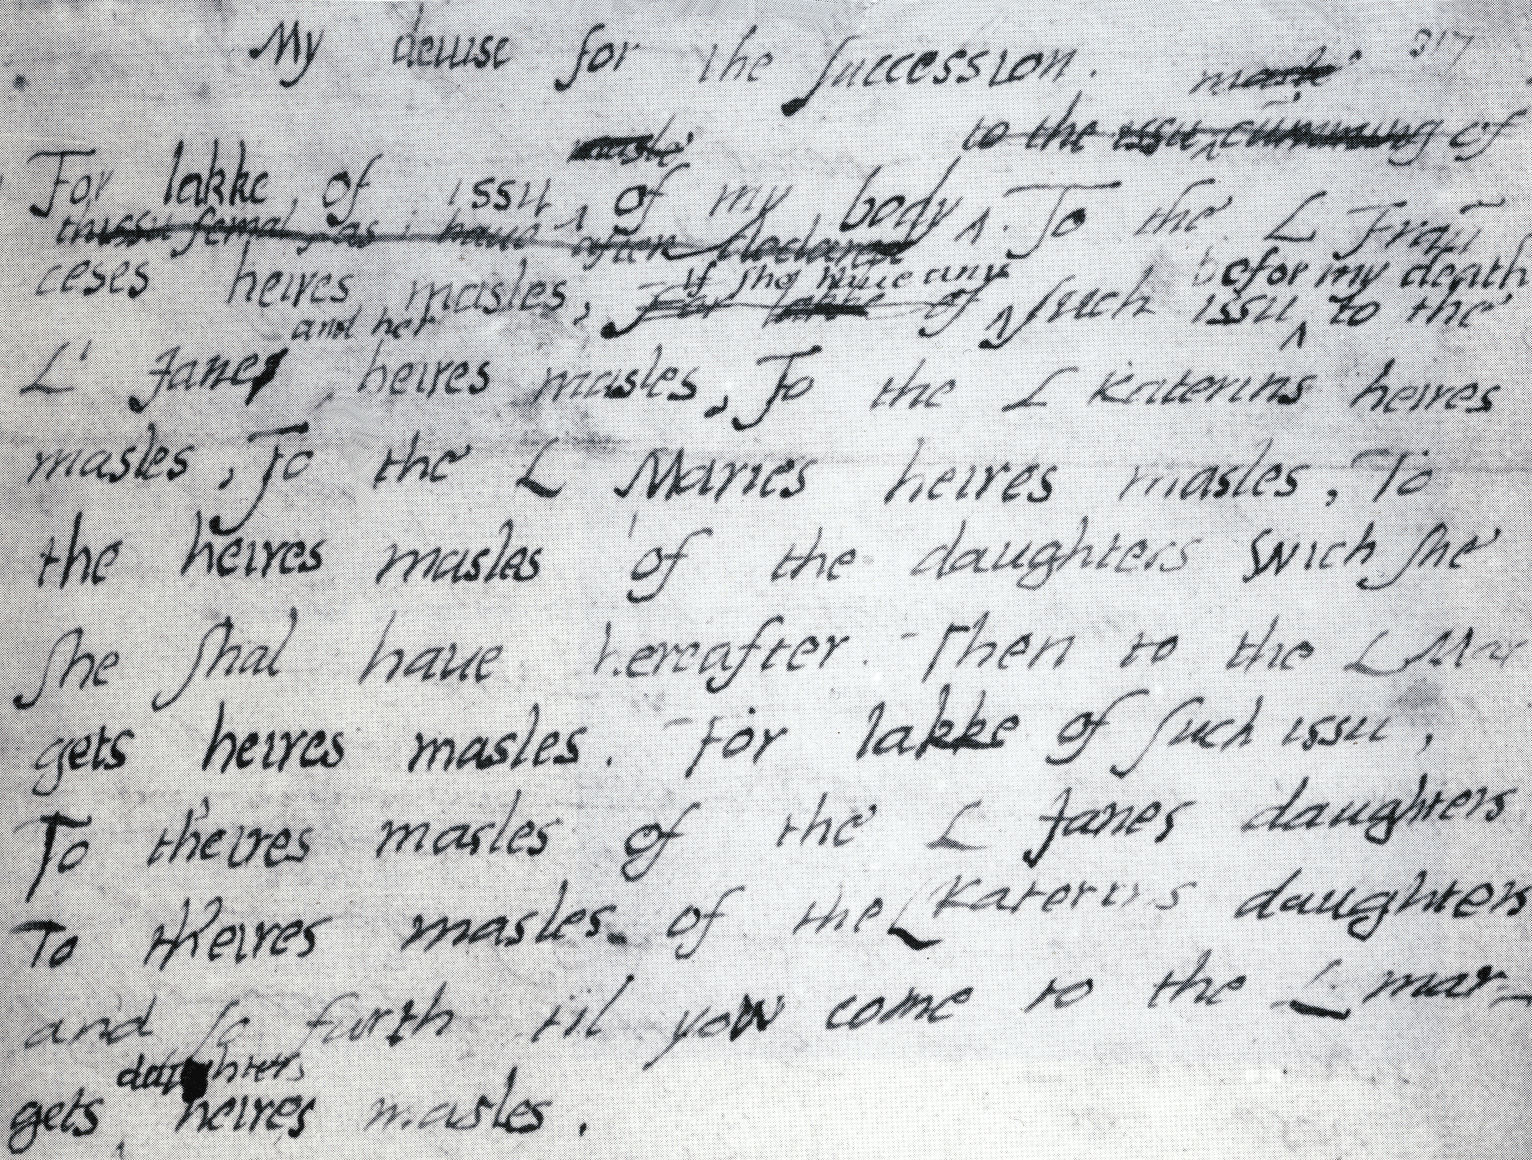 My deuise for the succession.
317
masle
masle
to the issu cumming of
For lakke of issu of my body To the L Fraun
thissu femal, as i haue after declared
ceses heires masles, For lakke of such issu to the
if she haue any
befor my death
and her
L' Janes heires masles, To the L Katerins heires
masles, To the L Maries heires masles, To
the heires masles of the daughters wich she
she shal haue hereafter. Then to the L Mar
gets heires masles. For lakke of such issu,
To th'eires masles of the L Janes daughters
To th'eires masles of the L Katerins daughters
and so forth til yow come to the L mar-
daughters
gets heires masles.